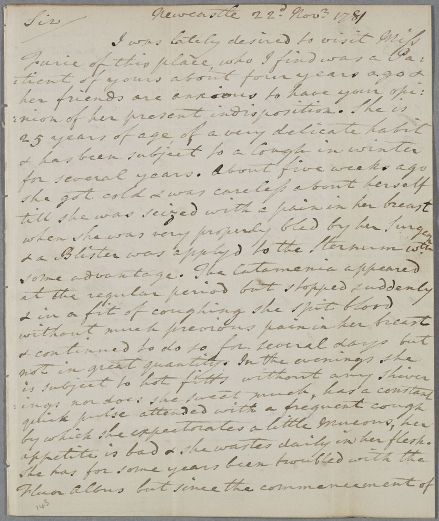 Newcastle 22d Novr 1781
Sir
I was lately desired to visit Miss
Furie of this place, who I find was a Pa=
=tient of yours about four years ago &
her friends are anxious to have your opi=
=nion of her present indisposition. She is
25 years of age of a very delicate habit
& has been subject to a Cough in winter
for several years. About five weeks ago
she got cold & was careless about herself
till she was seized with a pain in her breast
when she was very properly bled by her Surgeon
& a Blister was apply'd to the Sternum with
some advantage. The Catamenia appeared
at the regular period but stopped suddenly
& in a fit of coughing she spit blood
without much previous pain in her breast
& continued to do so for several days but
not in great quantity. In the evenings she
is subject to hot fitts without any shiver
=ings nor does she sweet much, has a constant
quick pulse attended with a frequent cough
by which she expectorates a little mucous, her
appetite is bad & she wastes daily in her flesh.
She has for some years been troubled with the
Fluor Albus but since the commencement of
143